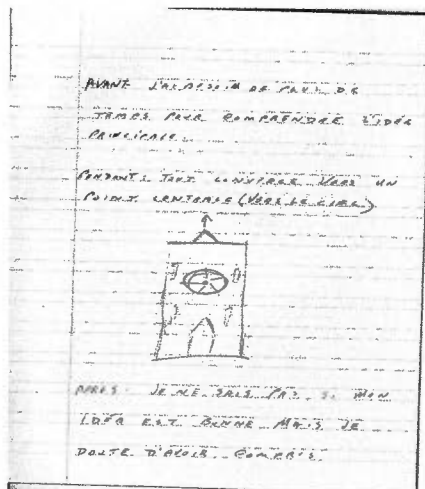 AVANT J'AI BESOIN DE PLUS DE
TEMPS POUR COMPRENDRE L'IDÉE
PRINCIPALE
PENDANT: TOUT CONVERGE VERS UN
POINT CENTRALE (VERS LE CIEL)
APRÈS JE NE SAIS PAS SI MON
IDÉE EST BONNE MAIS JE
DOUTE D'AVOIR COMPRIS